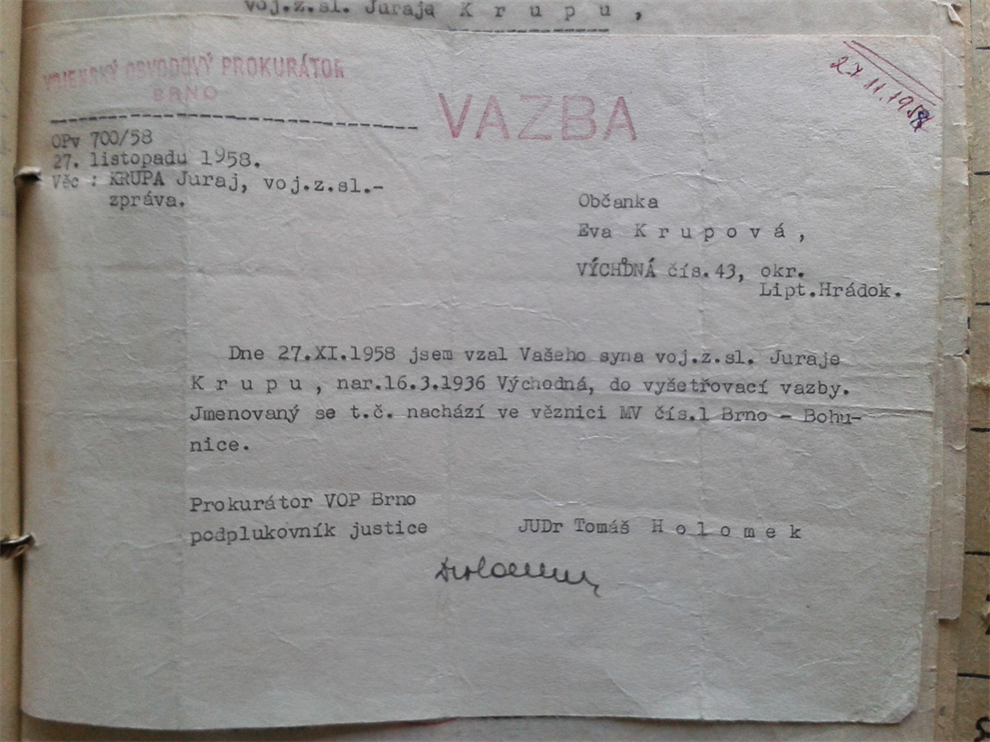 voj.z.sl. Juraje K r u p u ,
VOJENSKÝ OBVODOVÝ PROKURÁTOR
BRNO
VAZBA
27.11.1958
OPv 700/58
27. listopadu 1958.
Věc : KRUPA Juraj, voj.z.sl.-
zpráva.
Občanka
Eva K r u p o v á ,
VÝCHODNÁ čís.43, okr.
Lipt.Hrádok.
Dne 27.XI.1958 jsem vzal Vašeho syna voj.z.sl. Juraje
K r u p u , nar.16.3.1936 Východná, do vyšetřovací vazby.
Jmenovaný se t.č. nachází ve věznici MV čís.1 Brno - Bohu-
nice.
Prokurátor VOP Brno
podplukovník justice JUDr Tomáš H o l o m e k